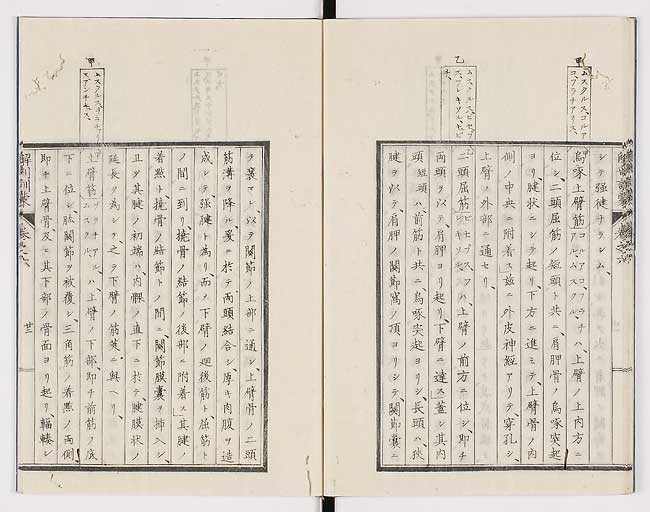 シテ強健ナラシム、
烏啄上臂筋「コルアコブラチアル、ムスクル」ハ、上臂ノ上内方ニ
位シ、二頭屈筋ノ短頭ト共ニ、肩胛骨ノ烏啄突起
ヨリ、腱状ニシテ起リ、下方ニ進ミテ、上臂骨ノ内
側ノ中央ニ附着ス、茲ニ外皮神経アリテ、穿孔シ、
上臂ノ外部ニ通セリ、
二頭屈筋ハ、上臂ノ前方ニ位シ、即チ
両頭ヲ以テ、肩胛ヨリ起リ、下臂ニ達ス、蓋シ其内
頭短頭ハ、前筋ト共ニ、烏啄突起ヨリシ、長頭ハ、狭
腱ヲ以テ、肩胛ノ関節窩ノ頂ヨリシテ、関節嚢ニ
テ裹マレ、以テ関節ノ上部ニ通シ、上臂骨ノ二頭
筋溝ヲ降ル、爰ニ於テ両頭結合シ、厚キ肉腹ヲ造
成シテ、強腱ト為リ、而ノ下臂ノ廻後筋ト、屈筋ト
ノ間ニ到リ、撓骨ノ結節ノ後部ニ附着ス、其腱ノ
着点ト、撓骨ノ結節トノ間ニ、関節膜嚢ヲ挿入シ、
且ツ其腱ノ初端ハ、内髁ノ直下ニ於テ、腱膜状ノ
延長ヲ為シテ、之ヲ下臂ノ筋葉ニ与ヘリ、
上臂筋「ブラチアル、ムスクル」ハ、上臂ノ下部、即チ前筋ノ底
下ニ位シ、肱関節ヲ被覆シ、三角筋ノ着点ノ両側、
即チ上臂骨及ヒ其下部ノ骨面ヨリ起リ、輻輳シ
甲
ムスクルス、コルア
コブラチアリス、
乙
甲
解剖訓蒙
巻之六
廿二